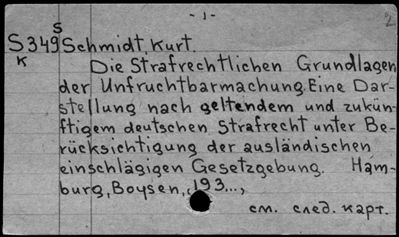 - 1 -
S
S349 Schmidt, Kurt.
K
Die Strafrechtlichen Grundlagen
der Unfruchtbarmachung. Eine Dar-
stellung nach geltendem und zukün-
ftigem deutschen Strafrecht unter Be-
rücksichtigung der ausländischen
einschlägigen Gesetzgebung. Ham-
burg, Boysen, 193...,
см. след. карт.